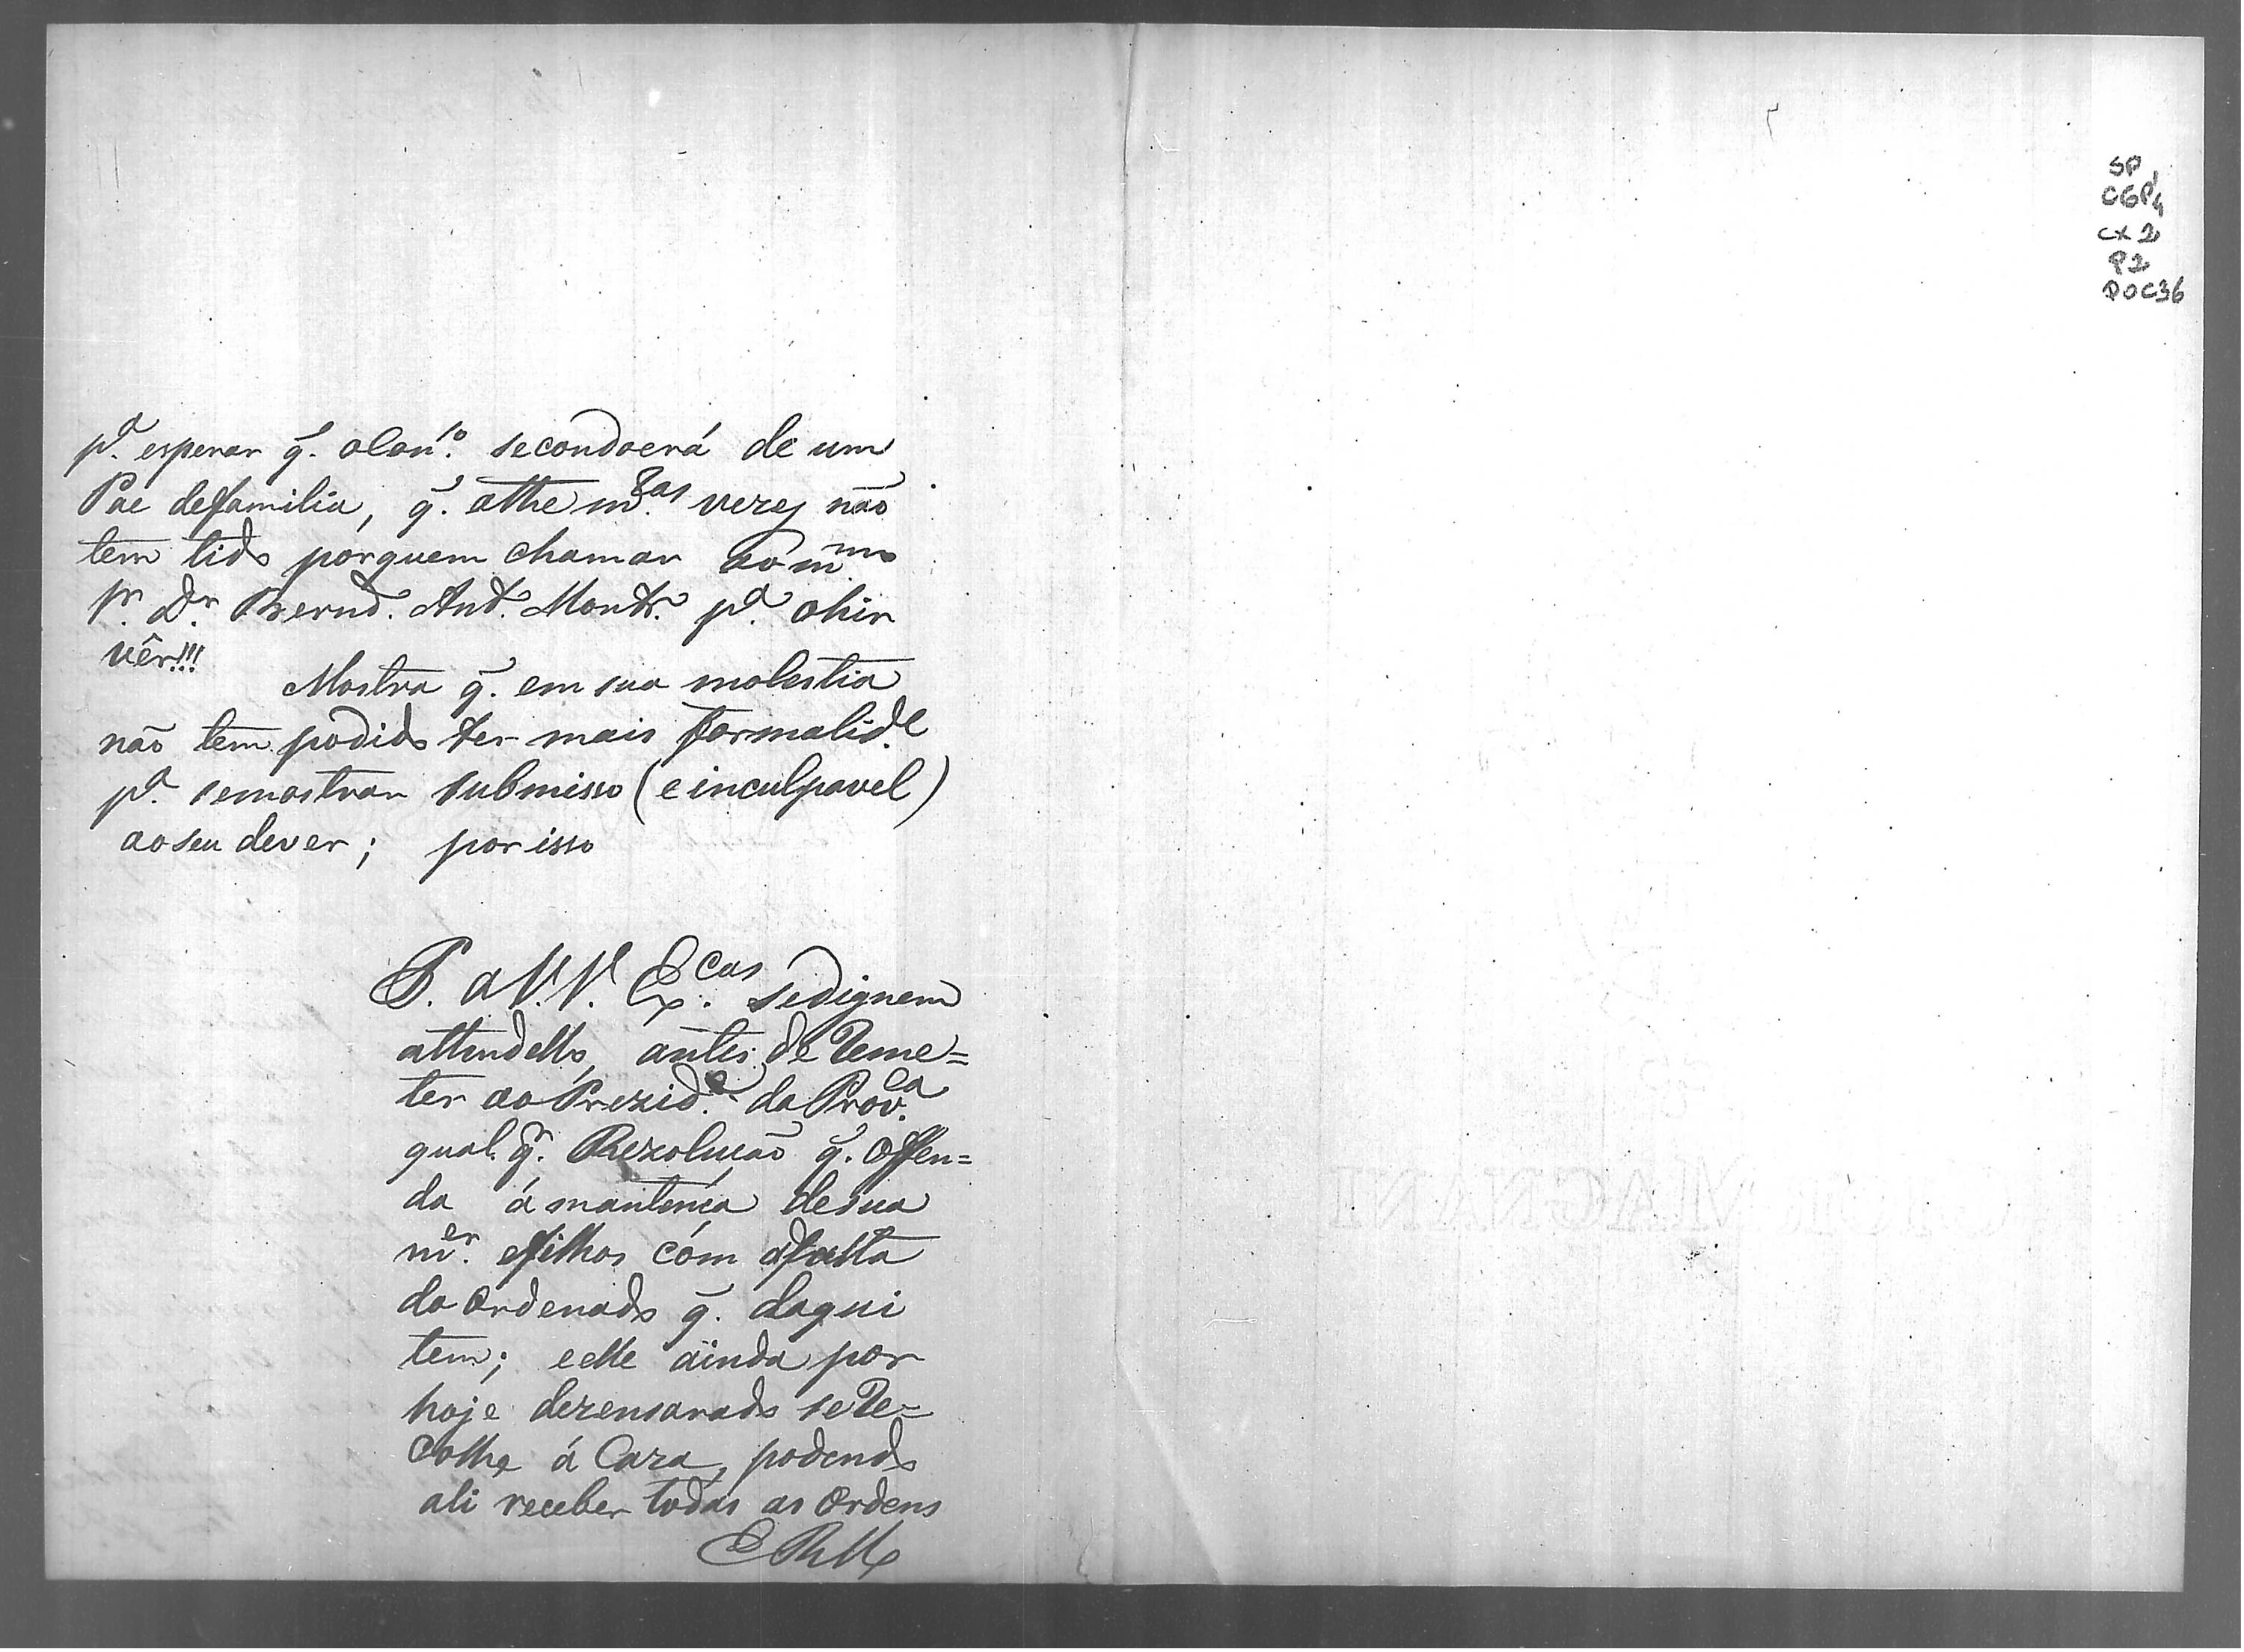 pª. esperar q̃. secondoerá de um
Pae defamilia, q̃. athe m.tas vezes não
tem tido porquem chamar ao mmo
Sr. Dr. Bernd. Ant. Montr. pª. ohir
vêr!!!
Mostra q̃. em sua molestia
não tem podido ter mais formalid.e
pª. semostrar submisso (e inculpavel)
aoseu dever; por isso
P. a V.V. Ex.cas sedignem
attendello, antes de reme=
ter ao Prezid.e da Prov.ca
qual q.r Rezolução q̃. offen=
da á mantença desua
m.er efilhos com afalta
do Ordenado q̃. daqui
tem; eelle ainda por
hoje dezensarado sere=
colhe á Caza, podendo
ali receber todas as Ordens
E R Mce
SP
CGP4
CX 2
P2
DOC36